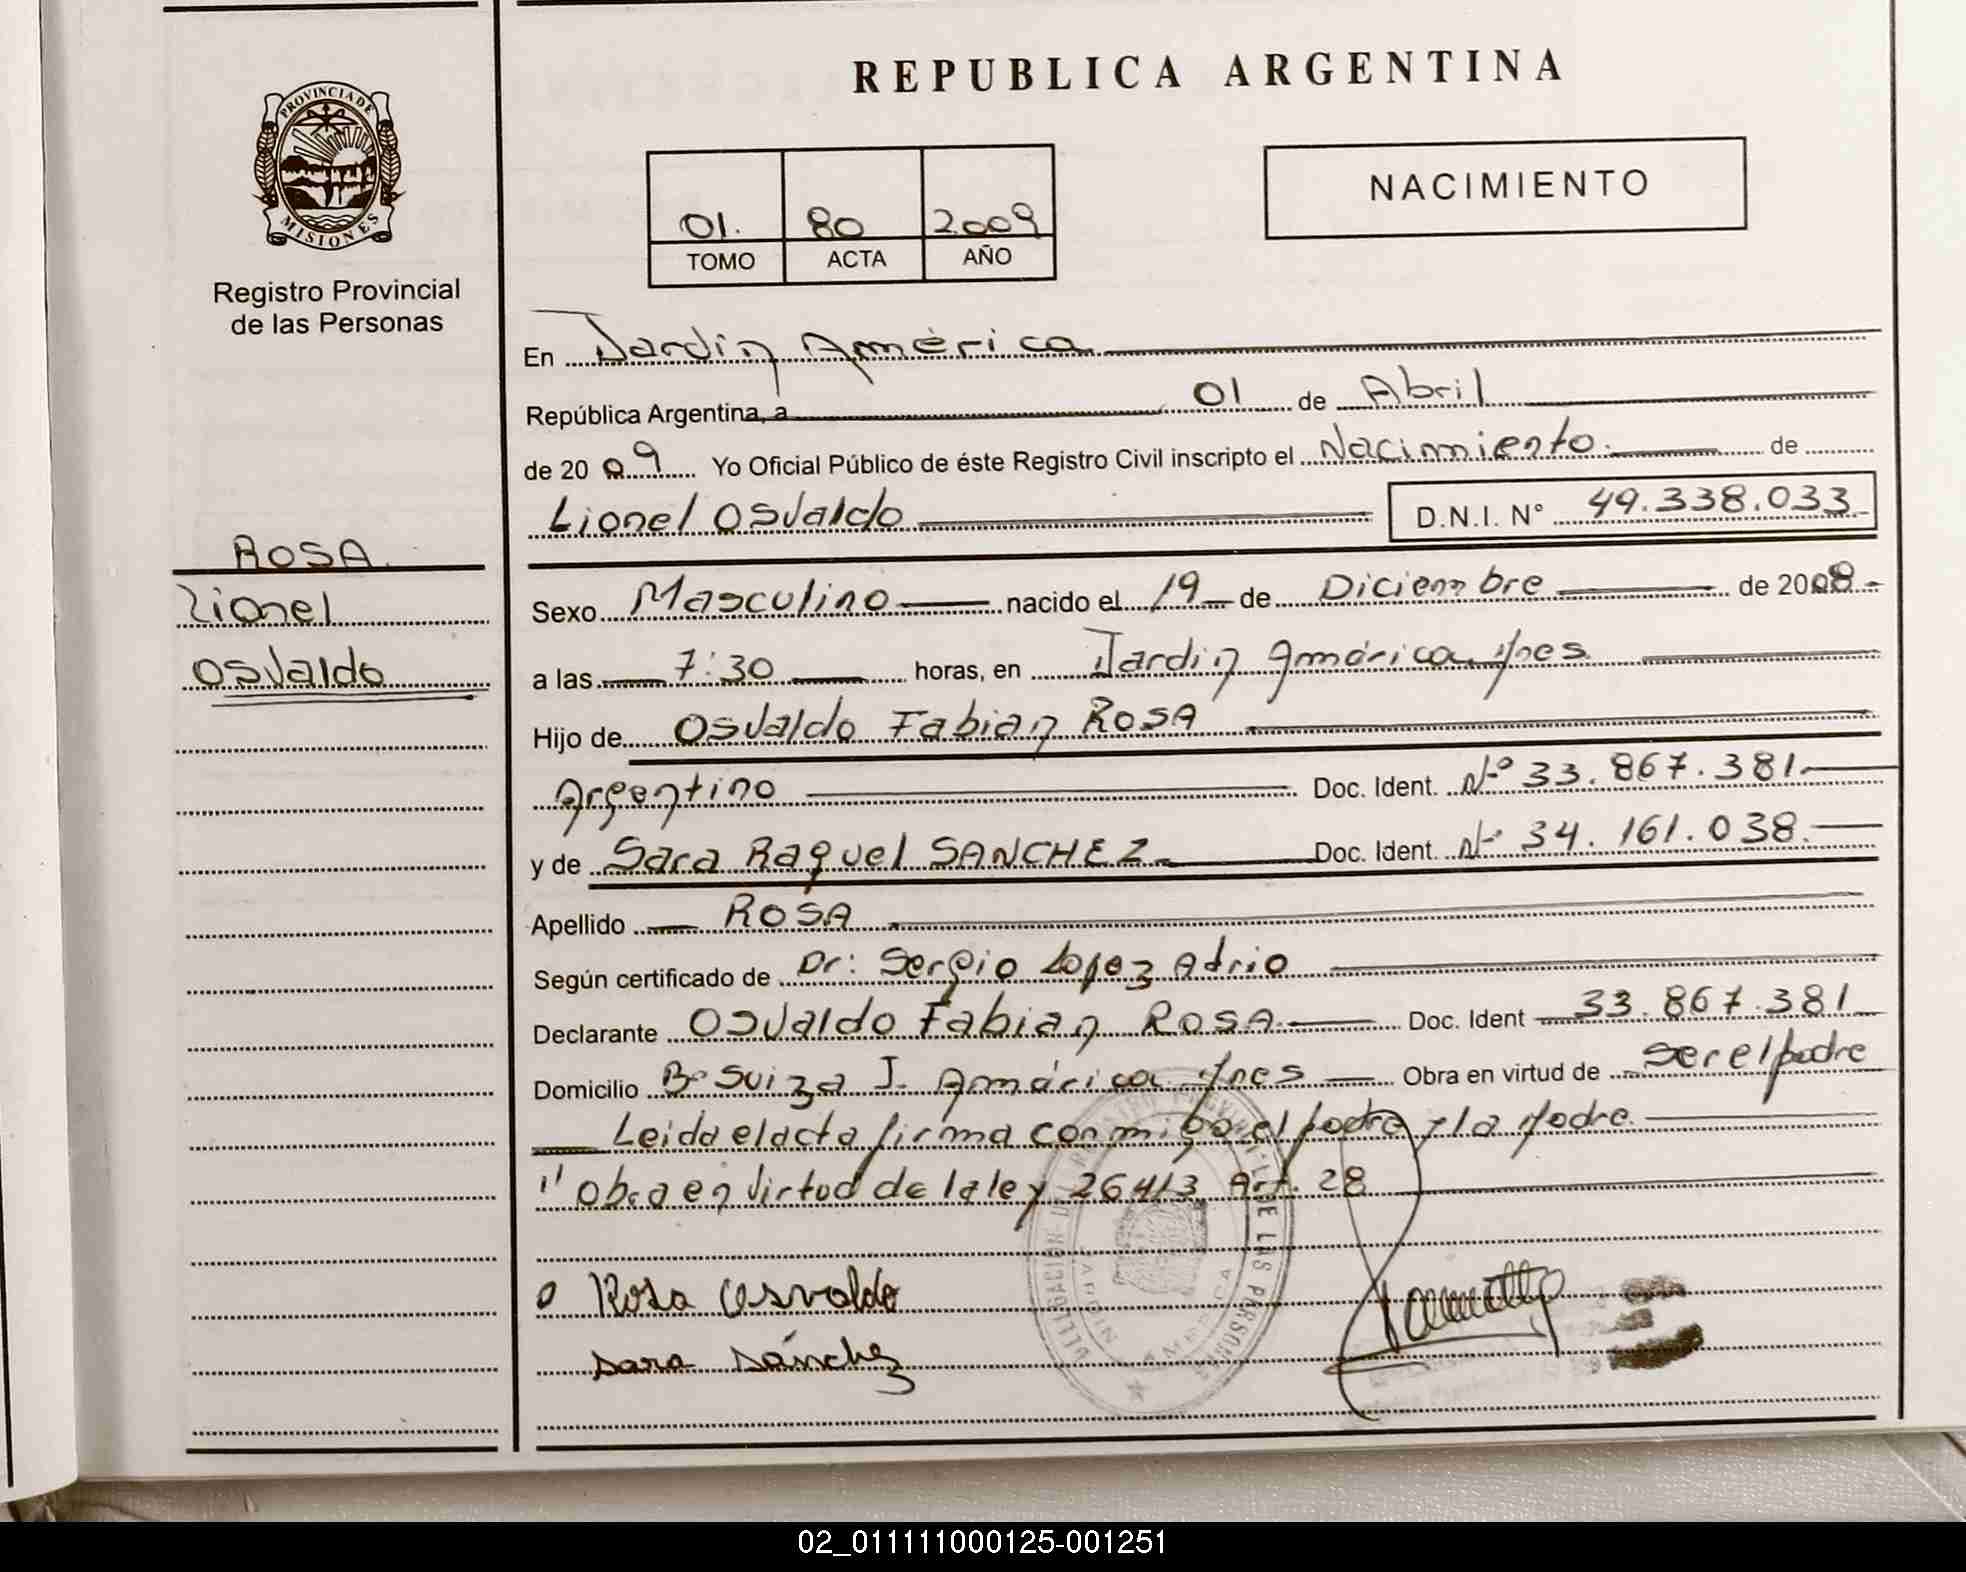 REPUBLICA ARGENTINA
PROVINCIA DE
MISIONES
Registro Provincial
de las Personas
01. 80 2009
TOMO ACTA AÑO
NACIMIENTO
En Jardín América
República Argentina, a 01 de Abril
de 2009 Yo Oficial Público de éste Registro Civil inscripto el Nacimiento de
Lionel Osvaldo D.N.I. N° 49.338.033
ROSA
Lionel
Osvaldo
Sexo Masculino nacido el 19 de Diciembre de 2008
a las 7:30 horas, en Jardín América Mnes
Hijo de Osvaldo Fabian ROSA
Argentino Doc. Ident. N° 33.867.381
y de Sara Raquel SANCHEZ Doc. Ident. N° 34.161.038
Apellido ROSA
Según certificado de Dr: Sergio Lopez Adrio
Declarante Osvaldo Fabian ROSA Doc. Ident 33.867.381
Domicilio B° Suiza J. América Mnes Obra en virtud de ser el padre
Leida el acta firma conmigo el padre y la Madre.
"obra en virtud de la ley 26413 Art. 28
Rosa Osvaldo
Sara Sánchez
DELEGACION DE LAS PERSONAS
JARDIN AMERICA
02_011111000125-001251